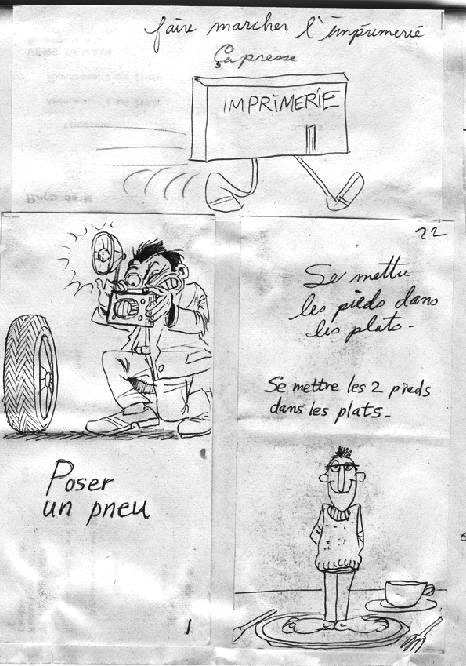 faire marcher l'imprimerie
Ça presse
IMPRIMERIE
22
Se mettre
les pieds dans
les plats -
Se mettre les 2 pieds
dans les plats -
Poser
un pneu
1